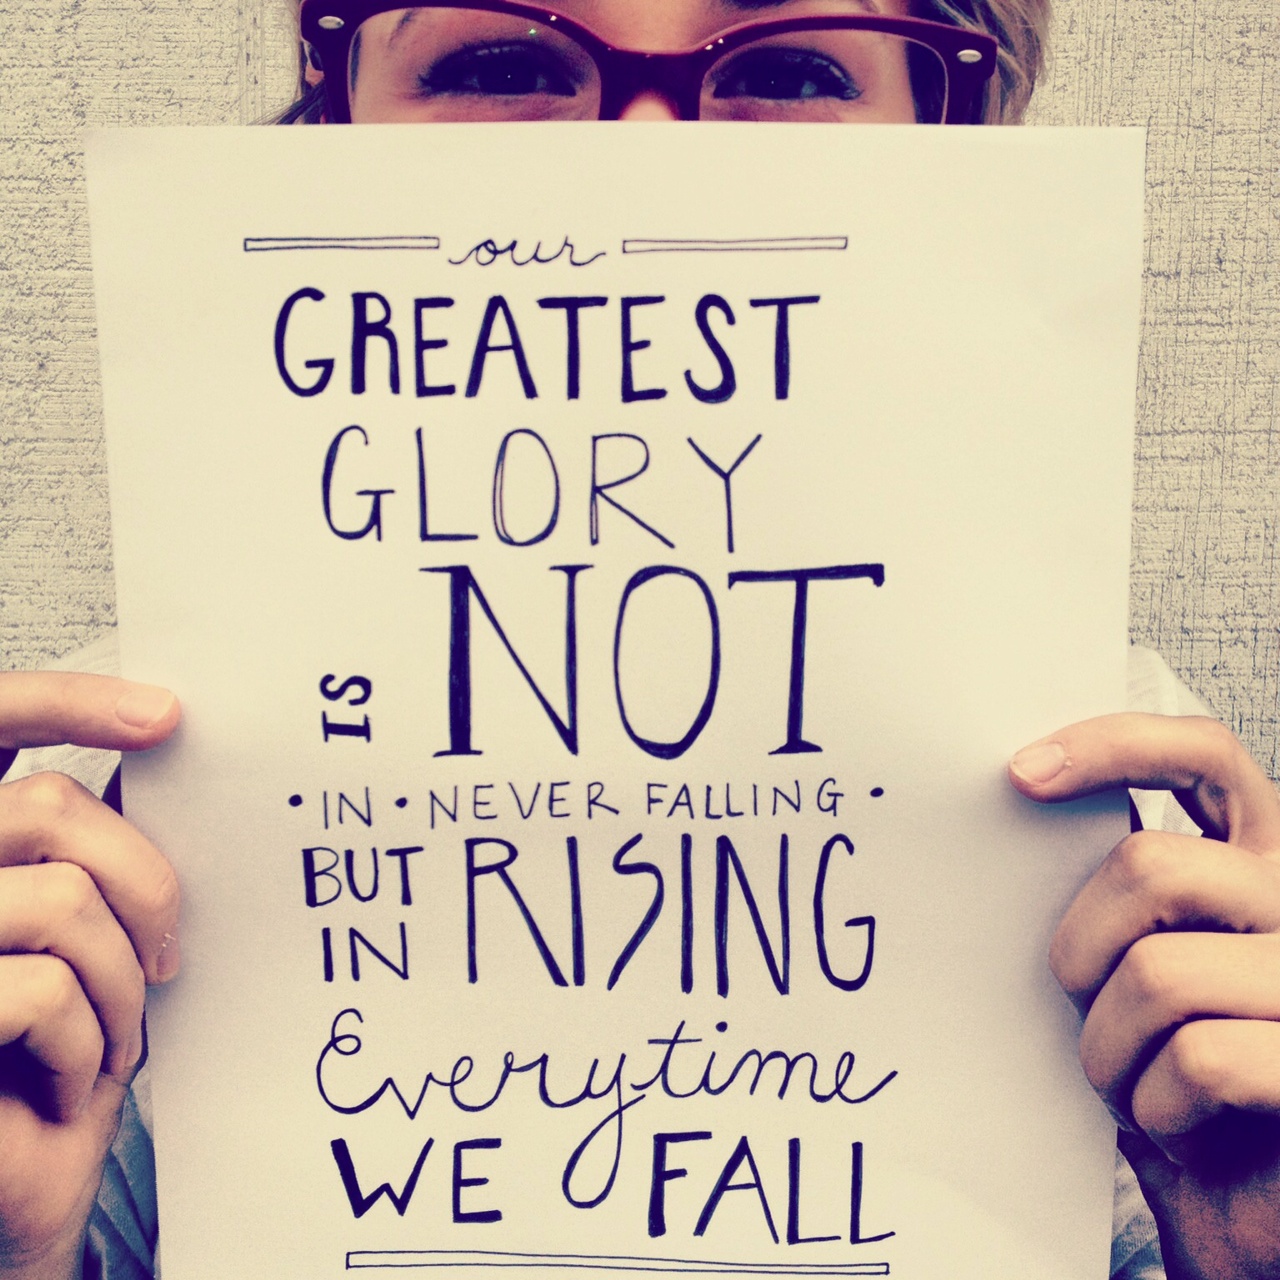 our
GREATEST
GLORY
IS NOT
• IN • NEVER FALLING •
BUT IN RISING
Everytime
WE FALL